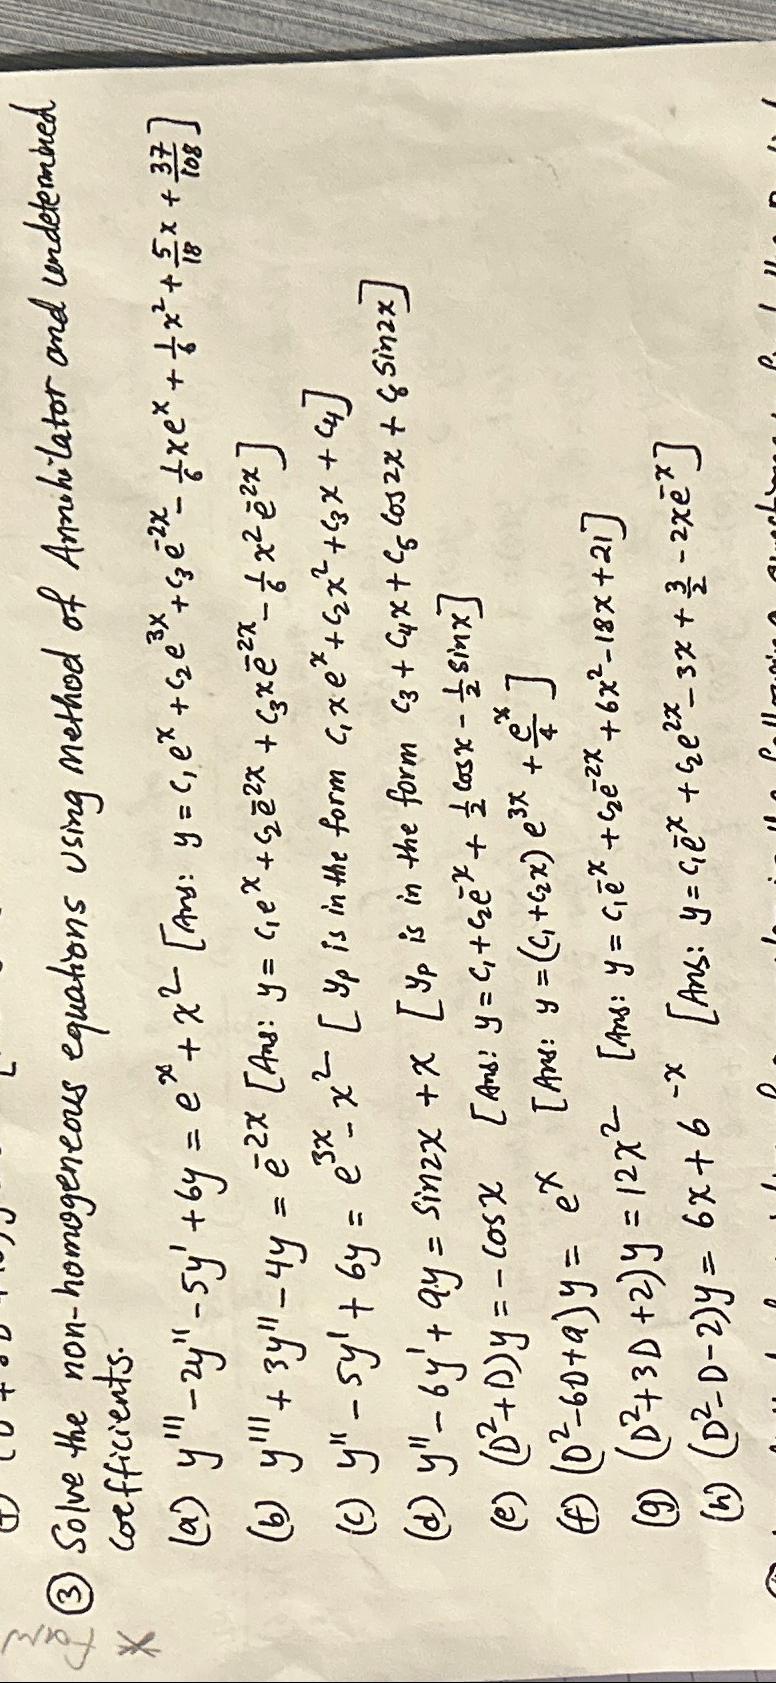 ③ Solve the non-homogeneous equations using method of Annihilator and undetermined
coefficients.
(a) y''' - 2y'' - 5y' + 6y = e^x + x^2 [Ans: y = c₁e^x + c₂e^{3x} + c₃e^{-2x} - 1/6 xe^x + 1/6 x^2 + 5/18 x + 37/108]
(b) y''' + 3y'' - 4y = e^{-2x} [Ans: y = c₁e^x + c₂e^{-2x} + c₃xe^{-2x} - 1/6 x^2 e^{-2x}]
(c) y'' - 5y' + 6y = e^{3x} - x^2 [y_p is in the form c₁xe^x + c₂x^2 + c₃x + c₄]
(d) y'' - 6y' + 9y = sin2x + x [y_p is in the form c₃ + c₄x + c₅cos2x + c₆sin2x]
(e) (D^2+D)y = -cosx [Ans: y = c₁ + c₂e^{-x} + 1/2 cosx - 1/2 sinx]
(f) (D^2-6D+9)y = e^x [Ans: y = (c₁+c₂x)e^{3x} + e^x/4]
(g) (D^2+3D+2)y = 12x^2 [Ans: y = c₁e^{-x} + c₂e^{-2x} + 6x^2 - 18x + 21]
(h) (D^2-D-2)y = 6x + 6^{-x} [Ans: y = c₁e^{-x} + c₂e^{2x} - 3x + 3/2 - 2xe^{-x}]